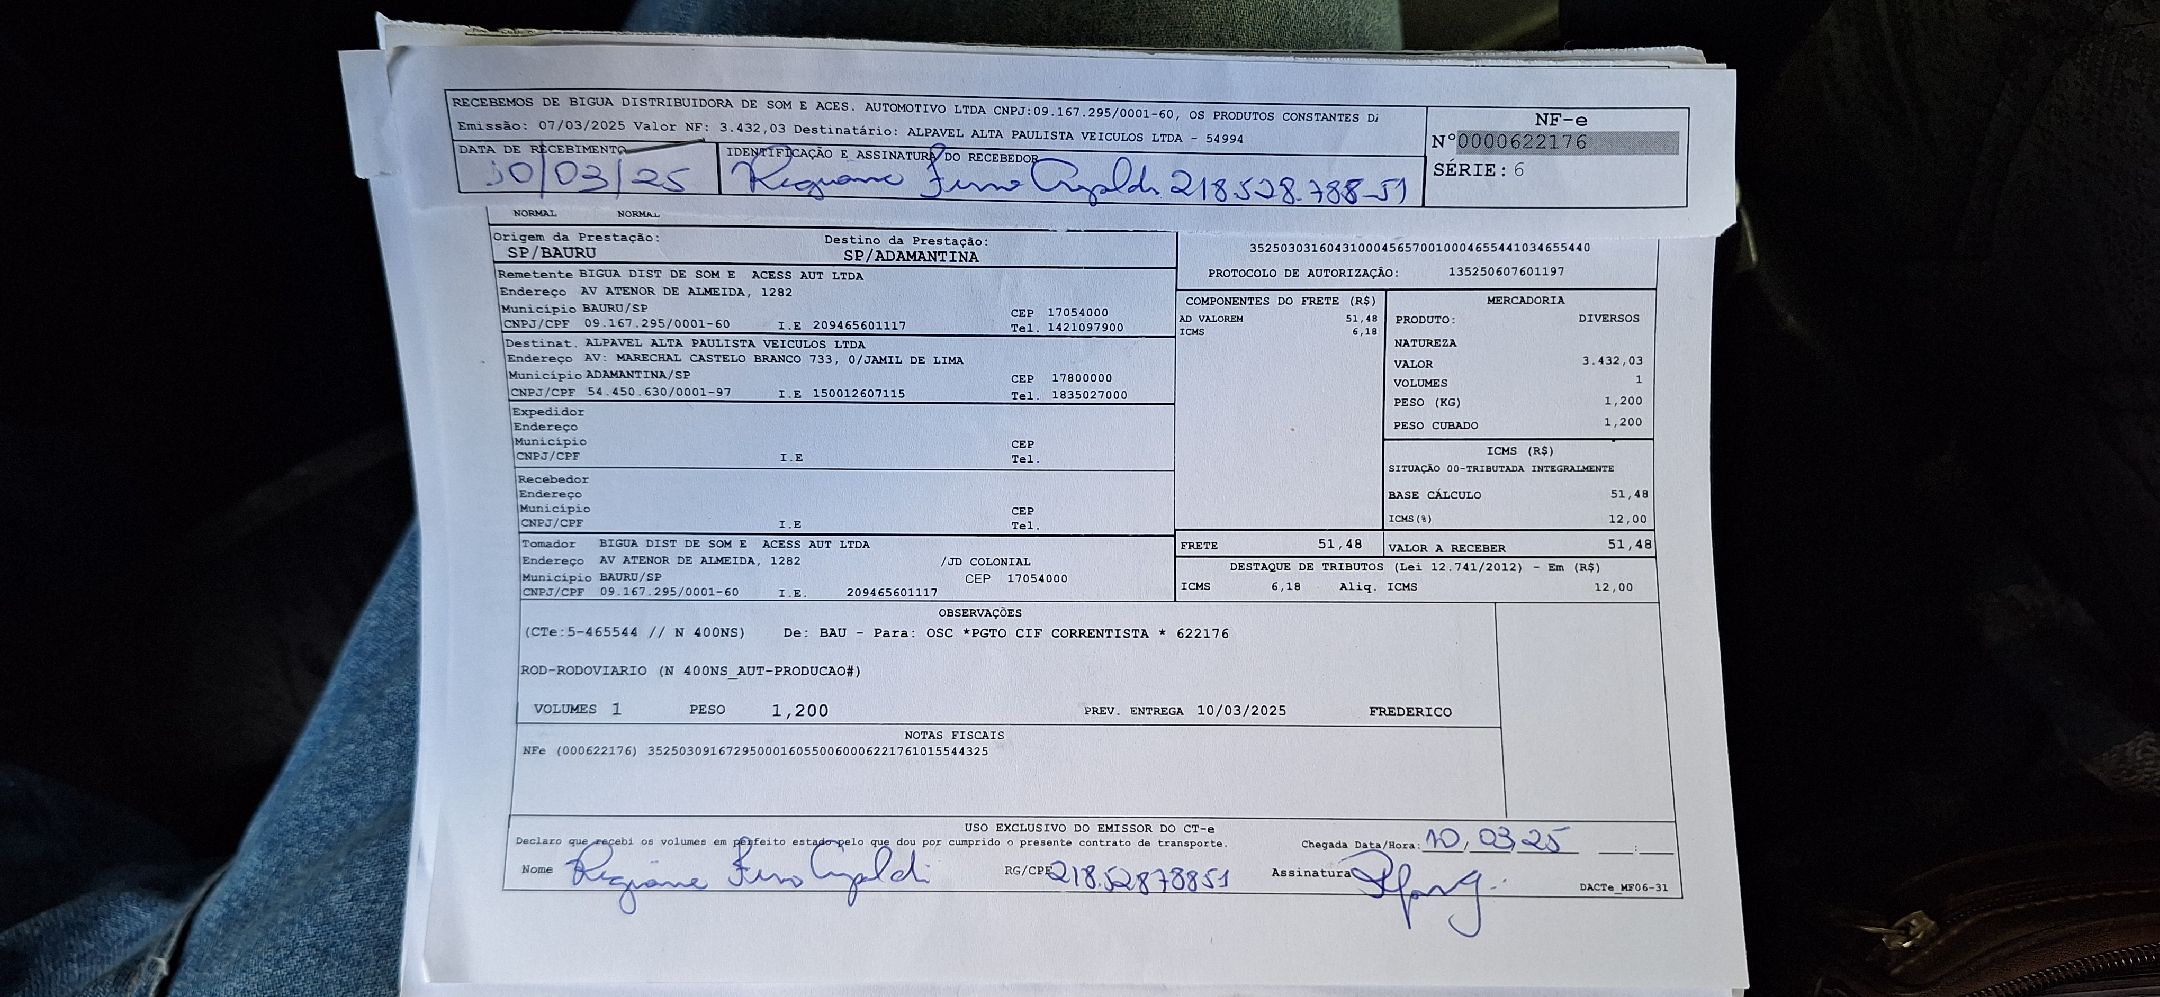 RECEBEMOS DE BIGUA DISTRIBUIDORA DE SOM E ACES. AUTOMOTIVO LTDA CNPJ:09.167.295/0001-60, OS PRODUTOS CONSTANTES DA
Emissão: 07/03/2025 Valor NF: 3.432,03 Destinatário: ALPAVEL ALTA PAULISTA VEICULOS LTDA - 54994
NF-e
Nº0000622176
SÉRIE: 6
DATA DE RECEBIMENTO
IDENTIFICAÇÃO E ASSINATURA DO RECEBEDOR
10/03/25
Regiane 218.528.788-51
NORMAL NORMAL
Origem da Prestação: Destino da Prestação:
SP/BAURU SP/ADAMANTINA
35250303160431000456570010004655441034655440
PROTOCOLO DE AUTORIZAÇÃO: 135250607601197
Remetente BIGUA DIST DE SOM E ACESS AUT LTDA
Endereço AV ATENOR DE ALMEIDA, 1282
Município BAURU/SP CEP 17054000
CNPJ/CPF 09.167.295/0001-60 I.E 209465601117 Tel. 1421097900
Destinat. ALPAVEL ALTA PAULISTA VEICULOS LTDA
Endereço AV: MARECHAL CASTELO BRANCO 733, 0/JAMIL DE LIMA
Município ADAMANTINA/SP CEP 17800000
CNPJ/CPF 54.450.630/0001-97 I.E 150012607115 Tel. 1835027000
Expedidor
Endereço
Município CEP
CNPJ/CPF I.E Tel.
Recebedor
Endereço
Município CEP
CNPJ/CPF I.E Tel.
Tomador BIGUA DIST DE SOM E ACESS AUT LTDA
Endereço AV ATENOR DE ALMEIDA, 1282 /JD COLONIAL
Município BAURU/SP CEP 17054000
CNPJ/CPF 09.167.295/0001-60 I.E. 209465601117
COMPONENTES DO FRETE (R$)
AD VALOREM 51,48
ICMS 6,18
MERCADORIA
PRODUTO: DIVERSOS
NATUREZA
VALOR 3.432,03
VOLUMES 1
PESO (KG) 1,200
PESO CUBADO 1,200
ICMS (R$)
SITUAÇÃO 00-TRIBUTADA INTEGRALMENTE
BASE CÁLCULO 51,48
ICMS(%) 12,00
FRETE 51,48 VALOR A RECEBER 51,48
DESTAQUE DE TRIBUTOS (Lei 12.741/2012) - Em (R$)
ICMS 6,18 Aliq. ICMS 12,00
OBSERVAÇÕES
(CTe:5-465544 // N 400NS) De: BAU - Para: OSC *PGTO CIF CORRENTISTA * 622176
ROD-RODOVIARIO (N 400NS_AUT-PRODUCAO#)
VOLUMES 1 PESO 1,200 PREV. ENTREGA 10/03/2025 FREDERICO
NOTAS FISCAIS
NFe (000622176) 35250309167295000160550060006221761015544325
USO EXCLUSIVO DO EMISSOR DO CT-e
Declaro que recebi os volumes em perfeito estado pelo que dou por cumprido o presente contrato de transporte.
Chegada Data/Hora: 10,03,25 :
Nome Regiane RG/CPF 218.52878851 Assinatura
DACTe_MF06-31